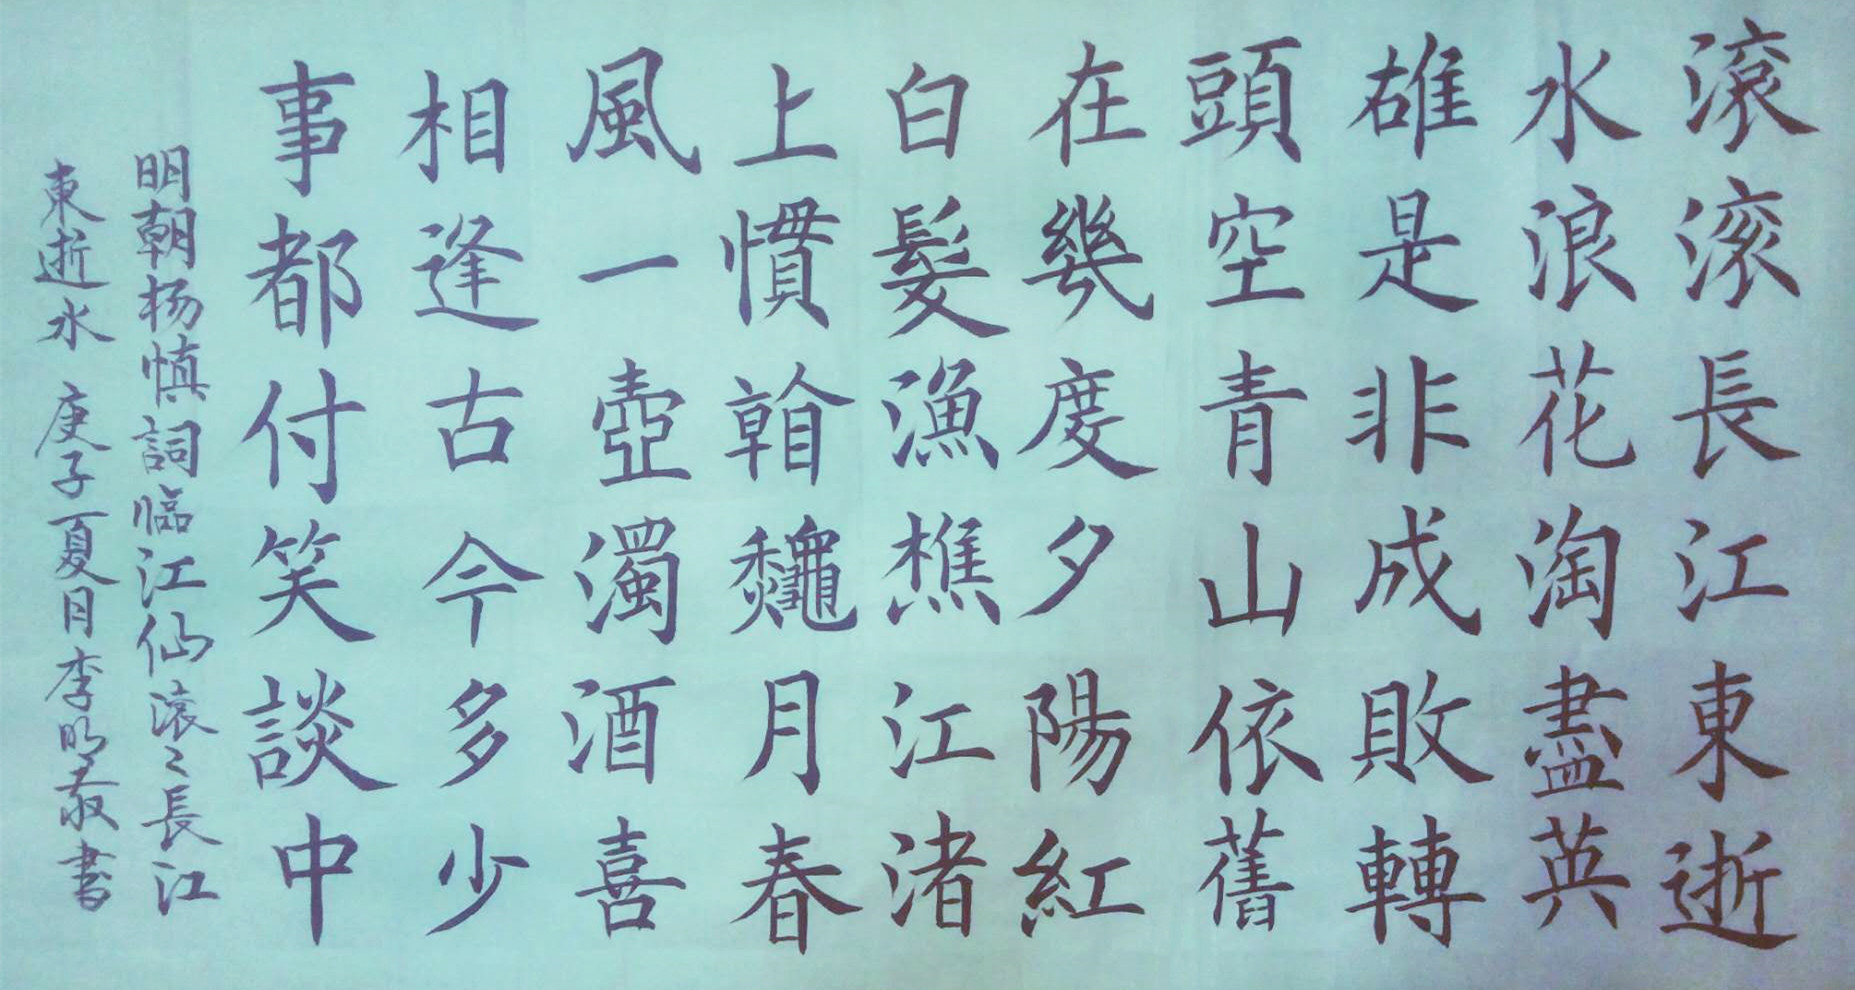 滾滾長江東逝
水浪花淘盡英
雄是非成敗轉
頭空青山依舊
在幾度夕陽紅
白髮漁樵江渚
上慣看秋月春
風一壺濁酒喜
相逢古今多少
事都付笑談中
明朝杨慎詞臨江仙滾々長江
東逝水 庚子夏月李明書